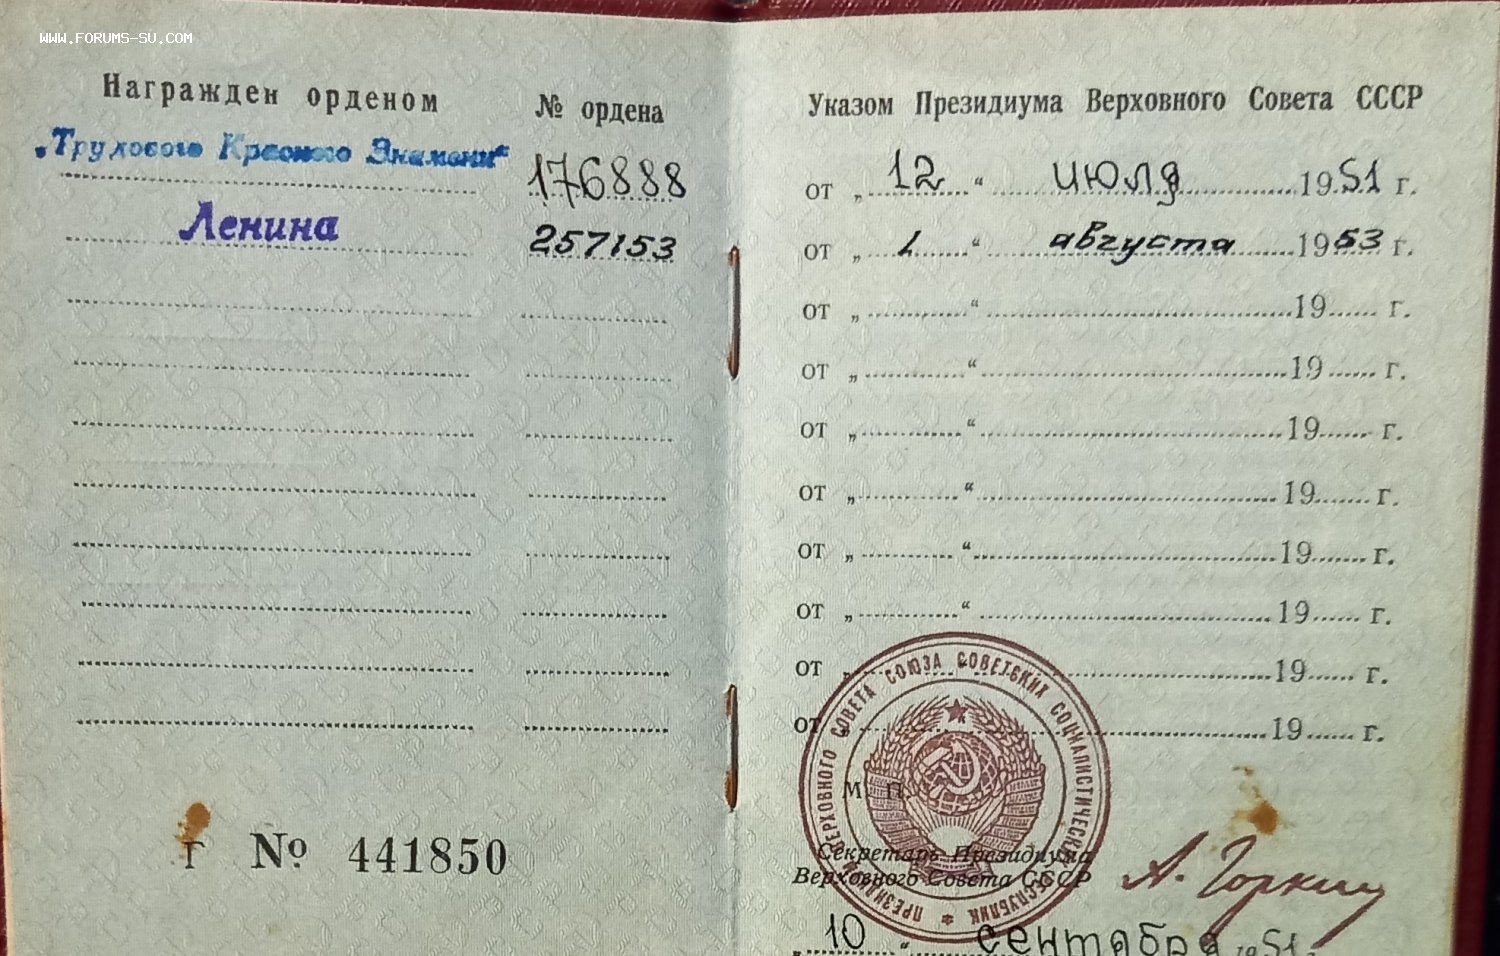 WWW.FORUMS-SU.COM
Награжден орденом
№ ордена
„Трудового Красного Знамени“
176888
Ленина
257153
Г № 441850
Указом Президиума Верховного Совета СССР
от „ 12 “ июля 1951 г.
от „ 1 “ августа 1953 г.
от „ “ 19 г.
от „ “ 19 г.
от „ “ 19 г.
от „ “ 19 г.
от „ “ 19 г.
от „ “ 19 г.
от „ “ 19 г.
от „ “ 19 г.
М П
ПРЕЗИДИУМ ВЕРХОВНОГО СОВЕТА СОЮЗА СОВЕТСКИХ СОЦИАЛИСТИЧЕСКИХ РЕСПУБЛИК
Секретарь Президиума
Верховного Совета СССР
А. Горкин
„ 10 “ сентября 1951 г.